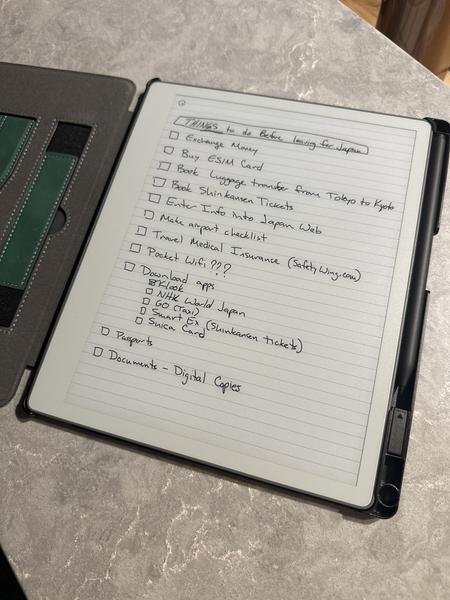 THINGS to do Before leaving for Japan
Exchange Money
Buy ESIM Card
Book Luggage transfer from Tokyo to Kyoto
Book Shinkansen Tickets
Enter Info into Japan Web
Make airport checklist
Travel Medical Insurance (SafetyWing.com)
Pocket Wifi???
Download apps
Klook
NHK World Japan
GO (Taxi)
Smart Ex (Shinkansen tickets)
Suica Card
Passports
Documents - Digital Copies